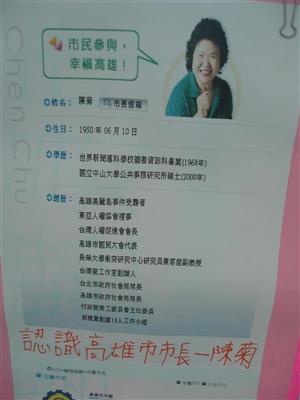 Chen Chu
市民參與，
幸福高雄！
姓名： 陳菊 市長信箱
生日： 1950 年 06 月 10 日
學歷： 世界新聞專科學校圖書資訊科畢業(1968年)
國立中山大學公共事務研究所碩士(2000年)
經歷： 高雄美麗島事件受難者
東亞人權協會理事
台灣人權促進會會長
高雄市國民大會代表
長榮大學衝突研究中心研究員兼客座副教授
台灣勞工作室創辦人
台北市政府社會局局長
高雄市政府社會局局長
行政院勞工委員會主任委員
民進黨創黨18人工作小組
認識高雄市市長－陳菊